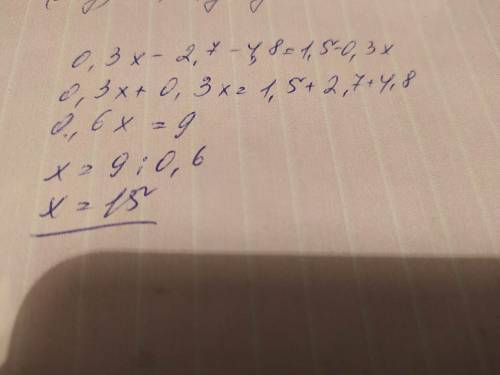 0,3x - 2,7 - 4,8 = 1,5 - 0,3x
0,3x + 0,3x = 1,5 + 2,7 + 4,8
0,6x = 9
x = 9 : 0,6
x = 15